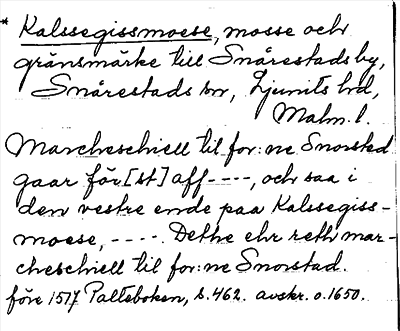 * Kalssegissmoese, mosse och
gränsmärke till Snårestads by,
Snårestads sn, Ljunits hd,
Malm. l.
Marcheschiell til for: ne Snorsted
gaar för [st] aff ----, och saa i
den vestre ende paa Kalssegiss-
moese, ----. Dethe ehr reth mar-
cheschiell til for: ne Snorstad.
före 1517 Palteboken, s. 462. avskr. o. 1650.